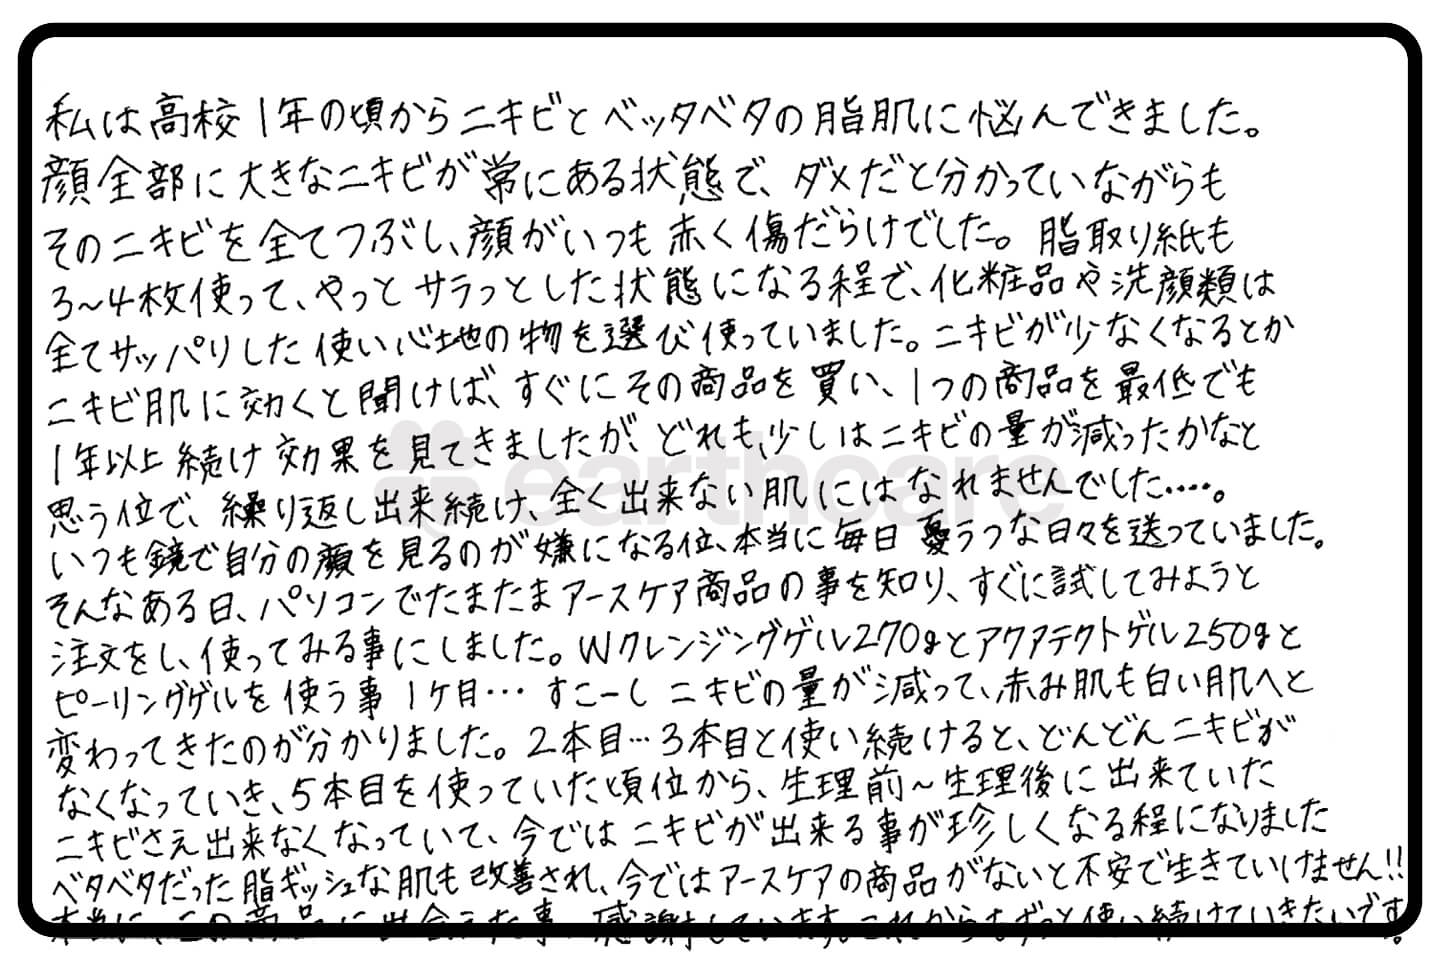 私は高校1年の頃からニキビとベッタベタの脂肌に悩んできました。
顔全部に大きなニキビが常にある状態で、ダメだと分かっていながらも
そのニキビを全てつぶし、顔がいつも赤く傷だらけでした。脂取り紙も
3〜4枚使って、やっとサラっとした状態になる程で、化粧品や洗顔類は
全てサッパリした使い心地の物を選び使っていました。ニキビが少なくなるとか
ニキビ肌に効くと聞けば、すぐにその商品を買い、1つの商品を最低でも
1年以上続け効果を見てきましたが、どれも、少しはニキビの量が減ったかなと
思う位で、繰り返し出来続け、全く出来ない肌にはなれませんでした‥‥。
earthcare
いつも鏡で自分の顔を見るのが嫌になる位、本当に毎日憂うつな日々を送っていました。
そんなある日、パソコンでたまたまアースケア商品の事を知り、すぐに試してみようと
注文をし、使ってみる事にしました。Wクレンジングゲル270gとアクアテクトゲル250gと
ピーリングゲルを使う事1ヶ月… すこーしニキビの量が減って、赤み肌も白い肌へと
変わってきたのが分かりました。2本目…3本目と使い続けると、どんどんニキビが
なくなっていき、5本目を使っていた頃位から、生理前〜生理後に出来ていた
ニキビさえ出来なくなっていて、今ではニキビが出来る事が珍しくなる程になりました
ベタベタだった脂ギッシュな肌も改善され、今ではアースケアの商品がないと不安で生きていけません!!
本当に、この商品に出会えた事、感謝しています。これからもずっと使い続けていきたいです。